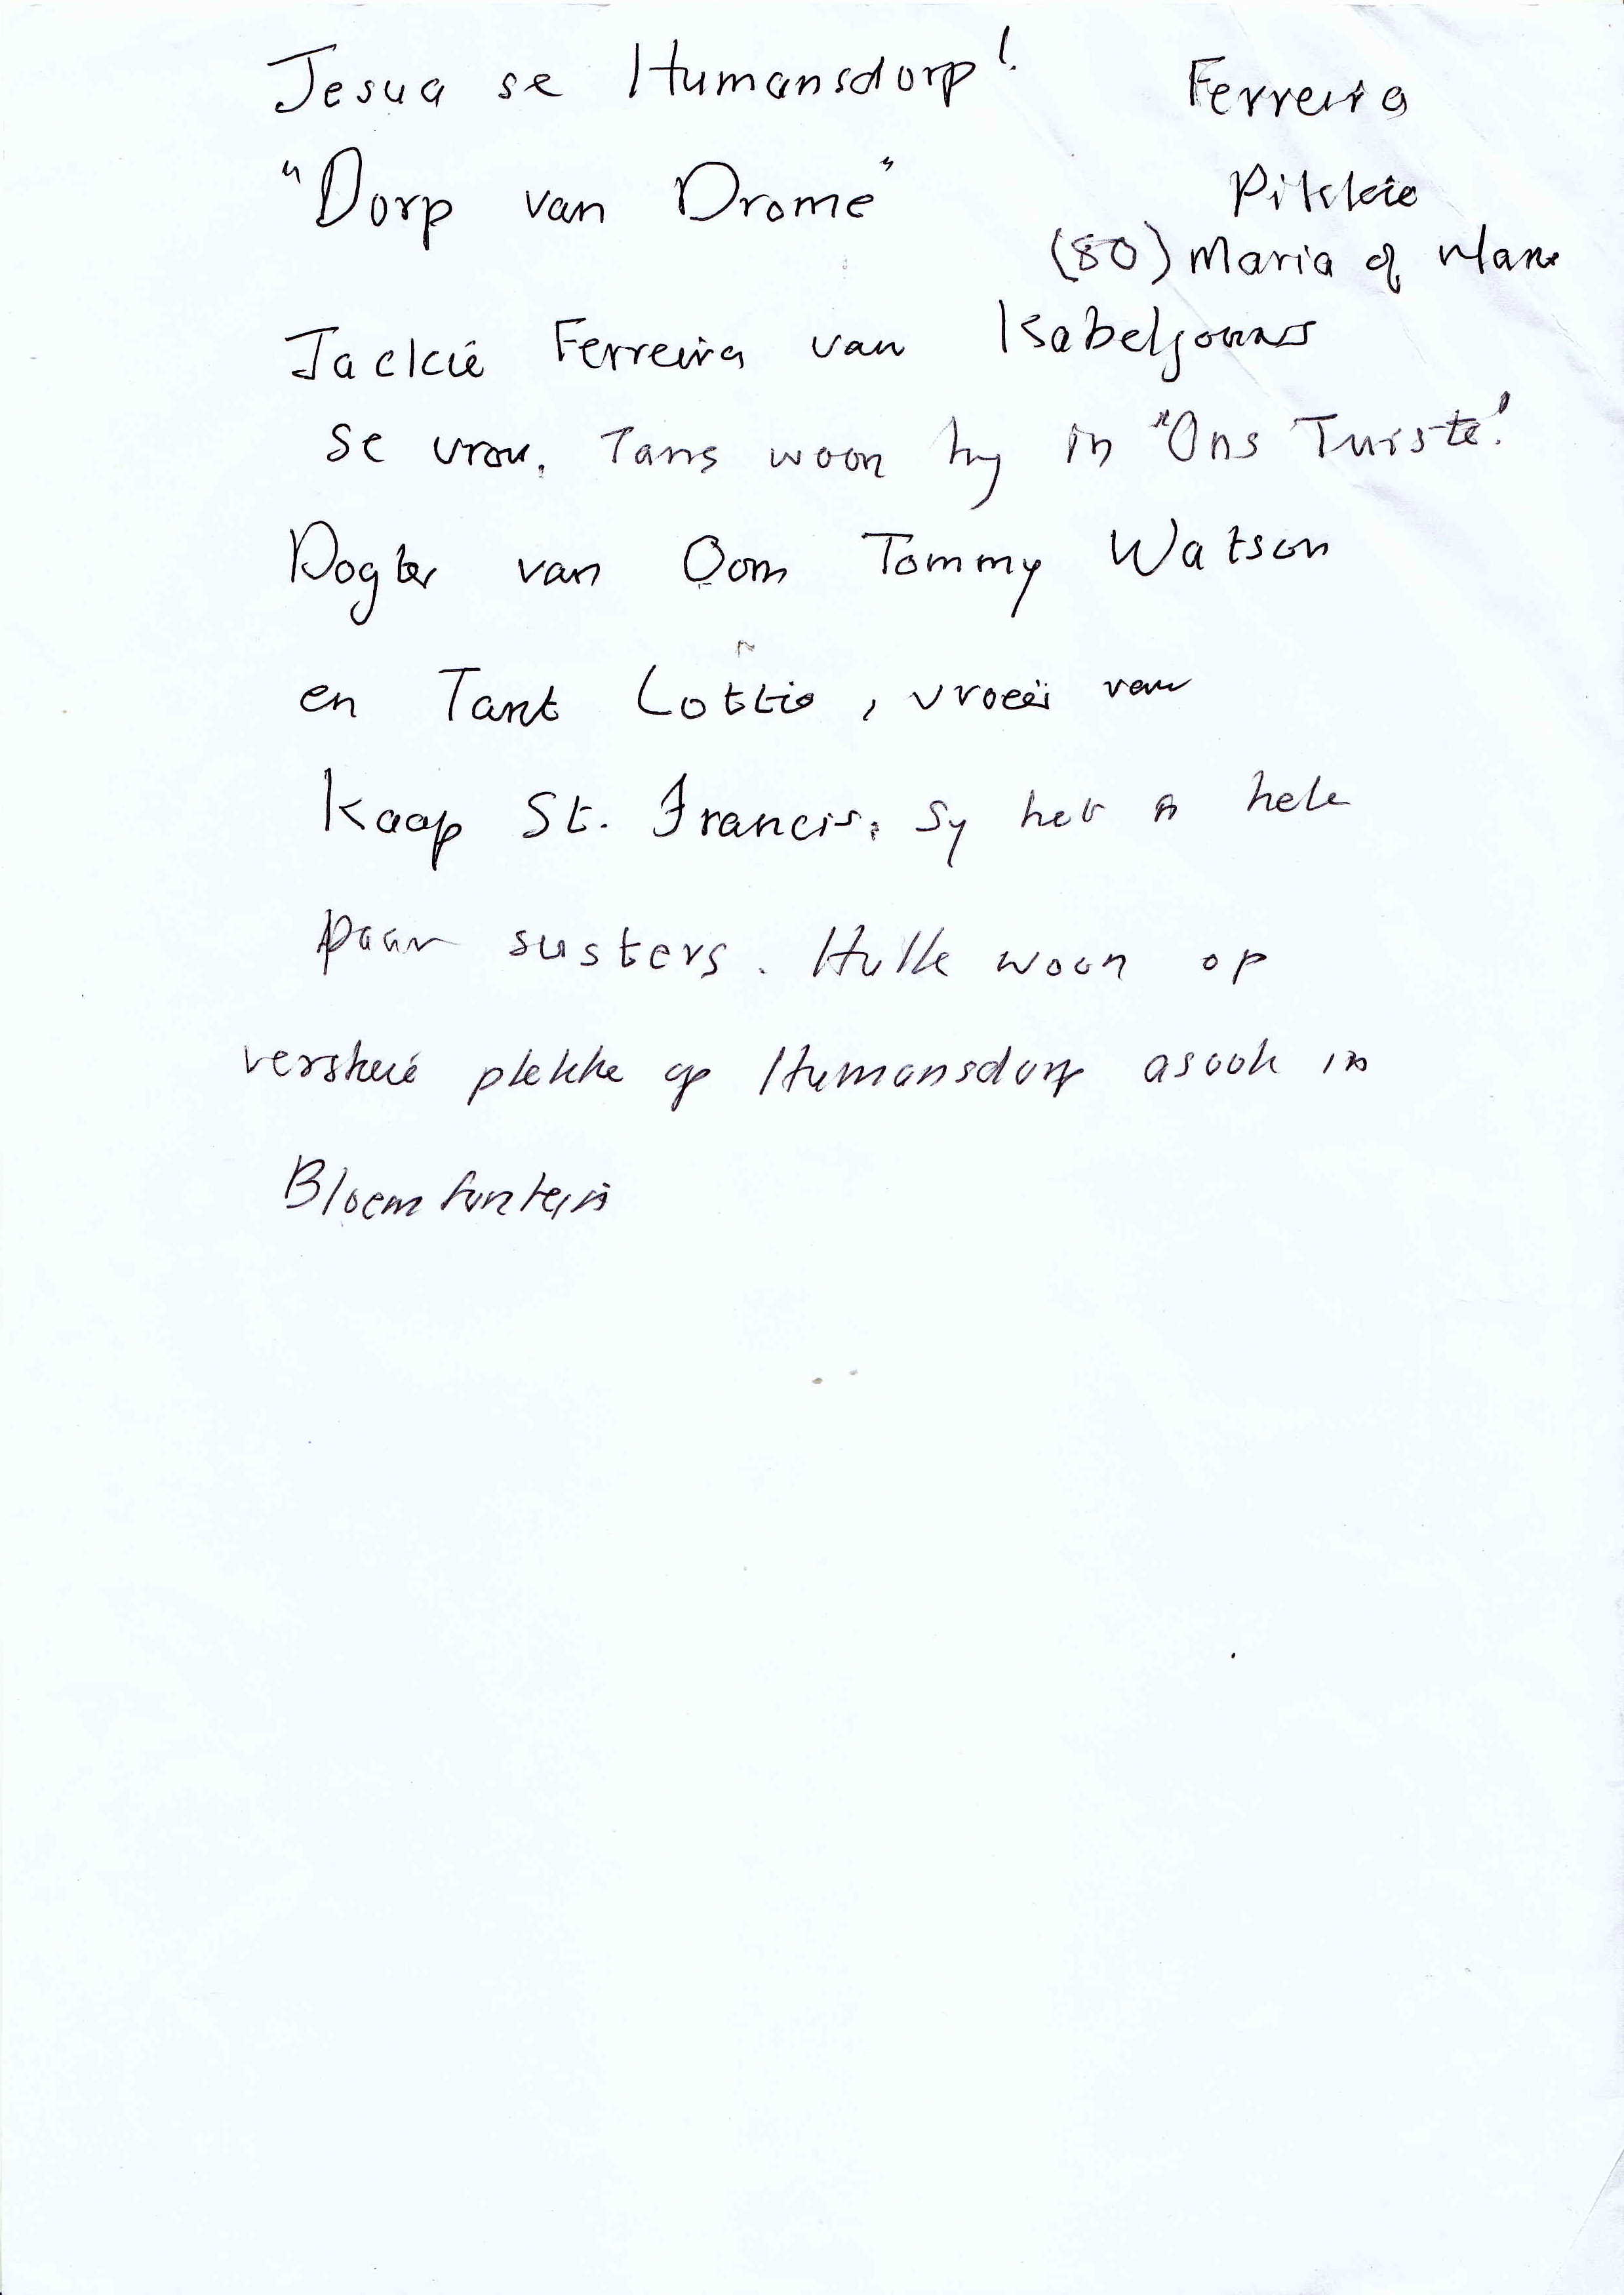 Jesua se Humansdorp!
Ferreira
"Dorp van Drome"
Pikkie
(80) Maria of
Jackie Ferreira van Kabeljouws
se vrou. Tans woon hy in "Ons Tuiste!
Dogter van Oom Tommy Watson
en Tant Lottie, vroeër van
Kaap St. Francis. Sy het 'n hele
paar susters. Hulle woon op
verskeie plekke op Humansdorp asook in
Bloemfontein